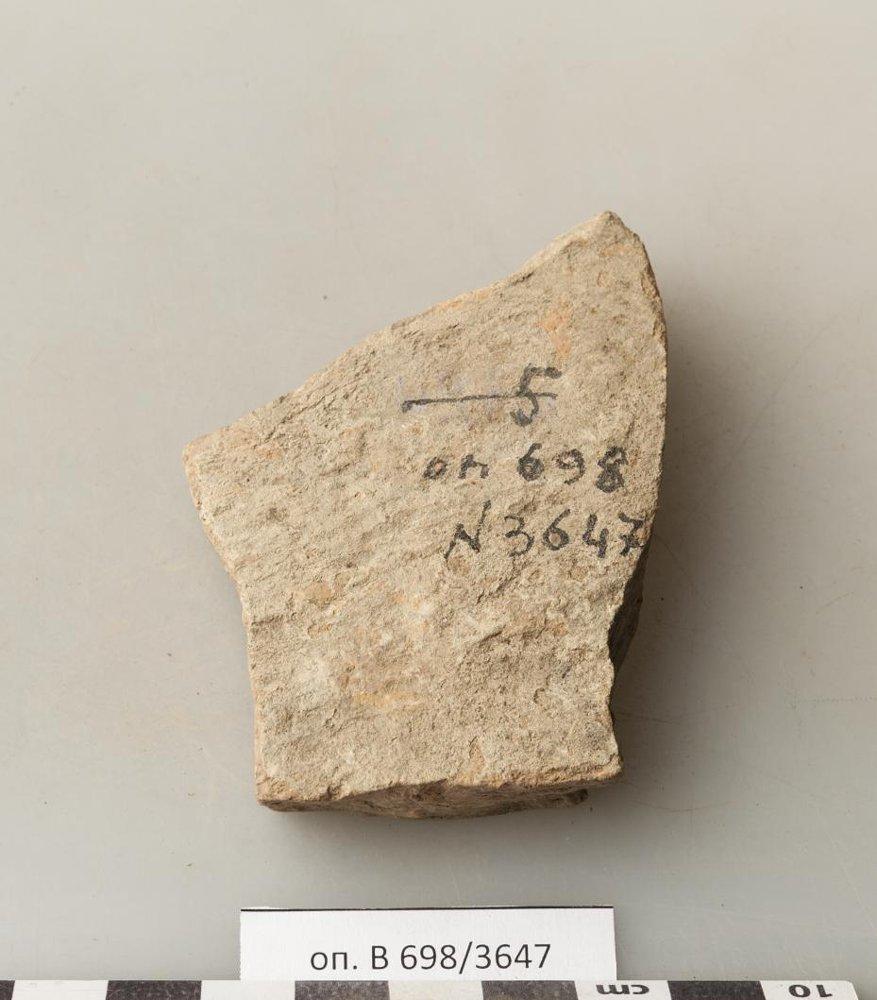 5
оп 698
N 3647
оп. В 698/3647
cm
10